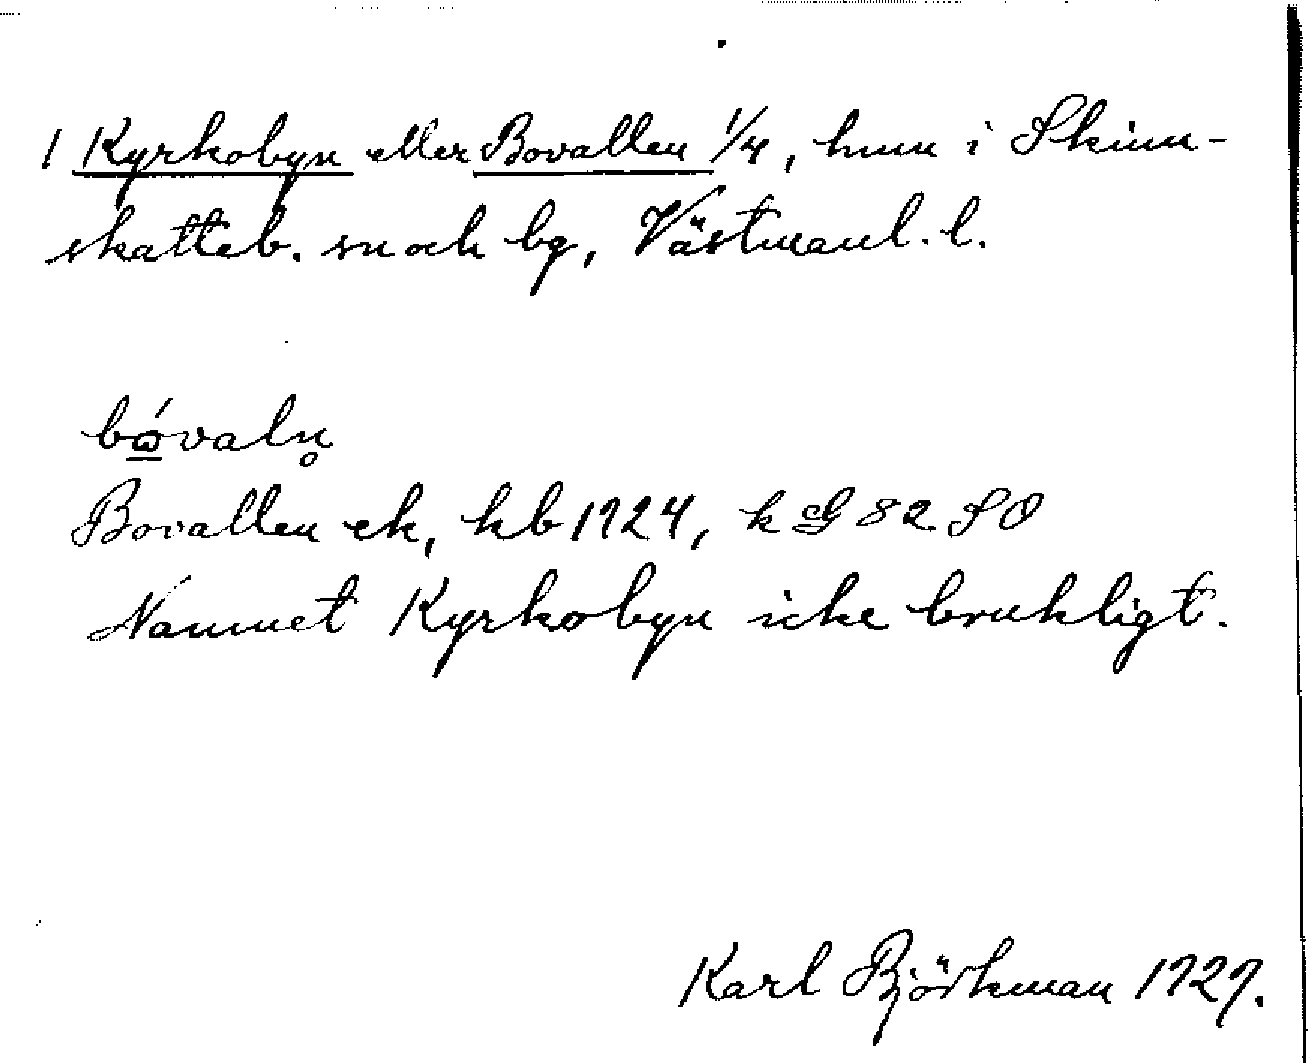 1 Kyrkobyn eller Bovallen 1/4, hmn i Skinn-
skatteb. sn och bg, Västmanl. l.
bǿvaln̥
Bovallen ek, kb 1924, k G 82 SO
Namnet Kyrkobyn icke brukligt.
Karl Björkman 1927.